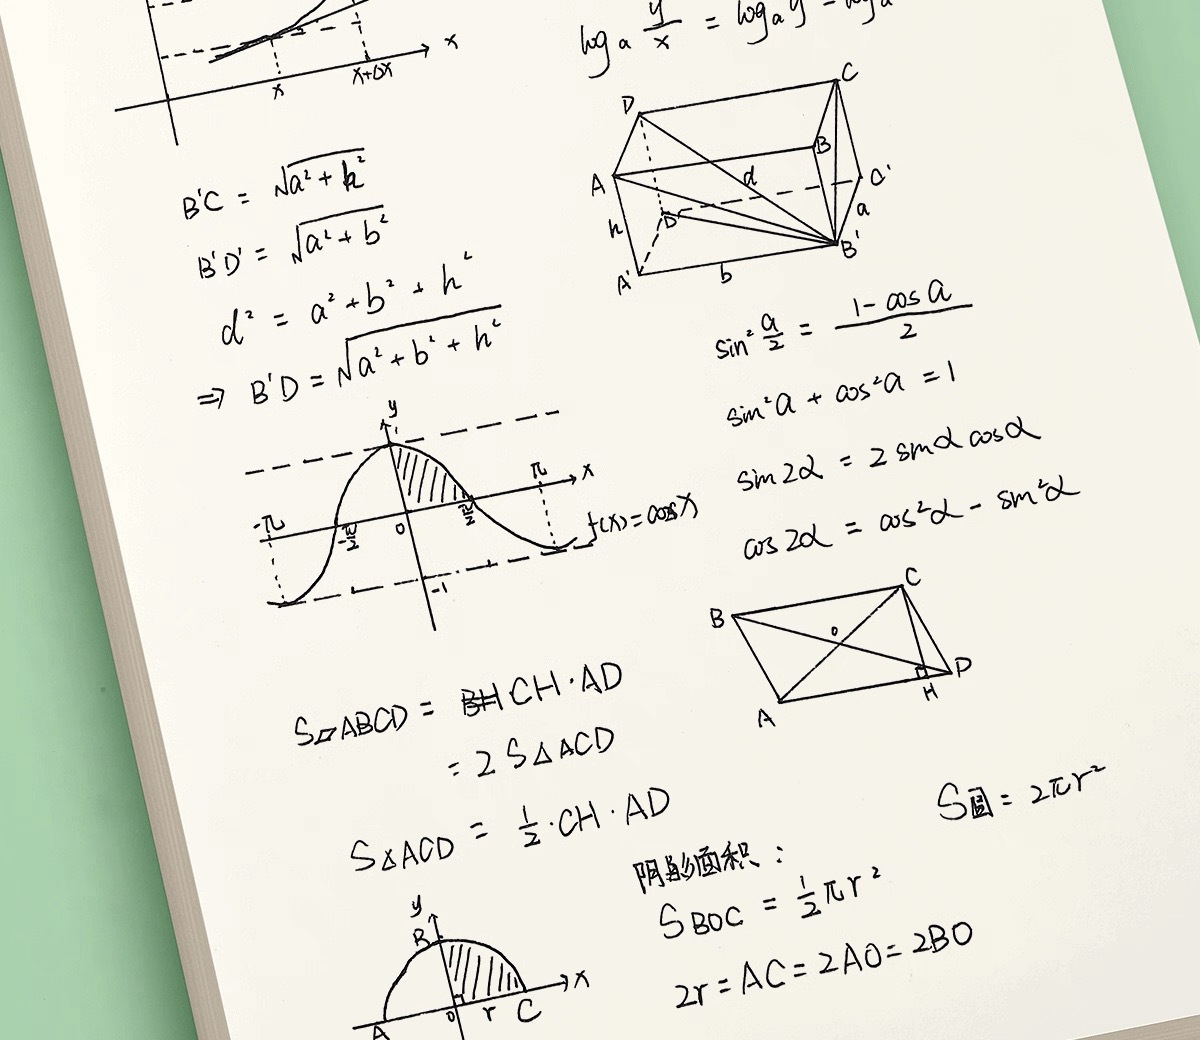 x
x
x+Δx
log a y/x = log a y - log a
B'C = √a²+h²
B'D' = √a²+b²
d² = a²+b²+h²
⇒ B'D = √a²+b²+h²
D
C
A
B
d
C'
h
D'
a
A'
b
B'
sin² a/2 = 1-cos a/2
sin²a + cos²a = 1
sin2α = 2sinα cosα
cos2α = cos²α - sin²α
y
1
π
x
-π
-π/2
0
π/2
f(x)=cosx
-1
B
C
o
A
H
D
S▱ABCD = CH·AD
= 2S△ACD
S△ACD = 1/2·CH·AD
S圆 = 2πr²
阴影面积：
S BOC = 1/2πr²
2r = AC = 2AO = 2BO
y
B
x
A
0
r
C